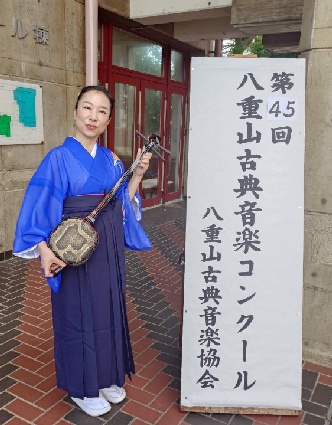 第45回
八重山古典音楽コンクール
八重山古典音楽協会
ール棟